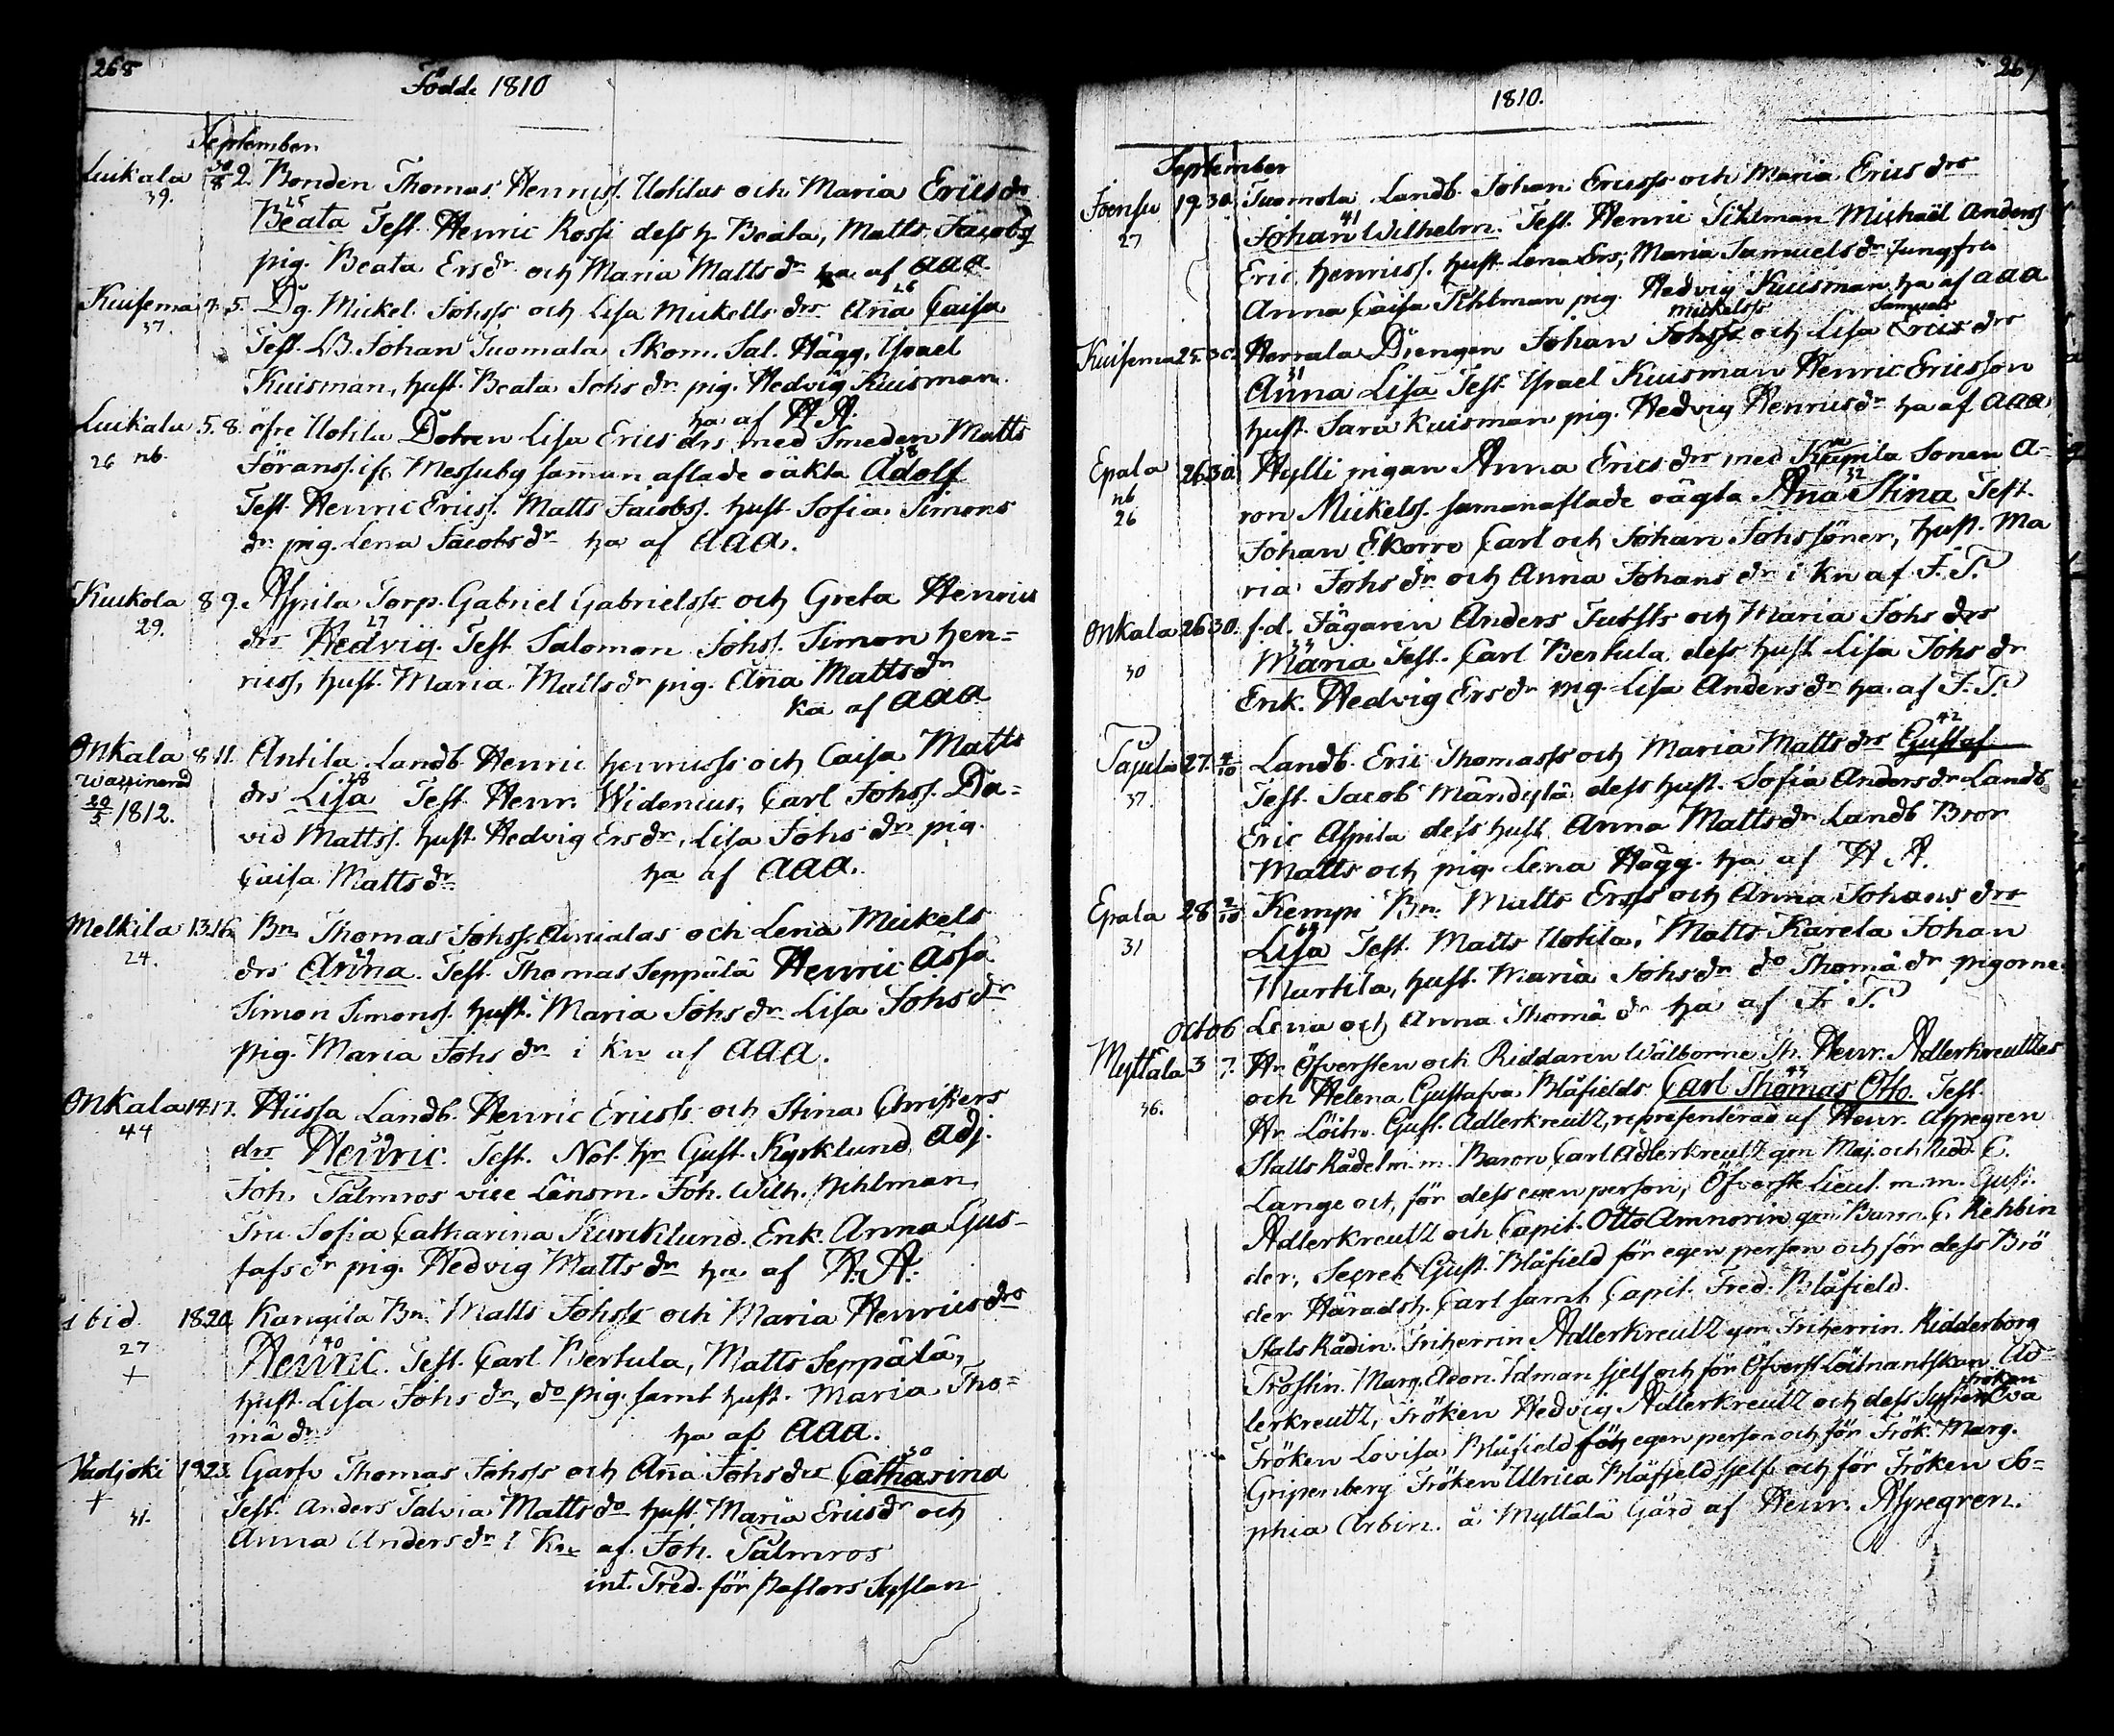 268
Födde 1810
September
Luikala 30/8 2. Bonden Thomas Henrics. Uotilas och Maria Erics dr
39.
25
Beata Test. Henric Rossi dess h. Beata, Matts Jacobs
pig. Beata Ersdr och Maria Mattsdr ha af AAA.
Kuisema 2. 5. Dg. Mickel Johss och Lisa Mickels drs Ana Caisa
37.
26
Test. LB. Johan Tuomala Skom. Sal. Hägg, Israel
Kuisman, hust. Beata Johs dr pig. Hedvig Kuisman
ha af HA.
Luikala 5. 8. öfre Uotila Dotren Lisa Erics drs med Smeden Matts
26 nb.
28
Föranss. ifr. Messuby samman aflade oäkta Adolf
Test Henric Erics. Matts Jacobs. hust Sofia Simons
dr pig. Lena Jacobsdr ha af AAA.
Kuckola 8 9. Aspila Torp. Gabriel Gabrielss och Greta Henrics
29.
27
drs Hedvig. Test Salomon Johs. Simon Hen=
rics, hust. Maria Mattsdr pig. Ana Mattsdr
ha af AAA
Onkala 8. 11. Antila Landb. Henric henricss och Caisa Matts
Waccinerad
20/5 1812.
28
drs Lisa Test Henr. Widenius, Carl Johs. Da=
vid Mattss. hust Hedvig Ersdr, Lisa Johs dr pig.
Caisa Matts dr ha af AAA.
Melkila 13. 16. Bn Thomas Johss. Anialas och Lena Mickels
24.
drs Anna. Test. Thomas Seppälä Henric Asso
Simon Simons. hust. Maria Johs dr Lisa Johs dr
pig. Maria Johs dr i Kn af AAA.
Onkala 14. 17. Hüssa Landb. Henric Ericss och Stina Christers
44
39
drs Henric. Test. Not. hr Gust. Kyrklund, Adj.
Joh. Palmros vice Länsm. Joh. Wilh. Pihlman
Fru Sofia Catharina Kurcklund. Enk. Anna Gus=
tafs dr pig. Hedvig Matts dr ha af H. A.
ibid. 18. 20. Kangila Bn. Matts Johss och Maria Henrics drs
27
+
40
Henric. Test. Carl Bertula, Matts Seppälä,
hust. Lisa Johs dr, do pig. samt hust. Maria Tho=
mä dr ha af AAA.
19. 23. Garfv. Thomas Johss och Ana Johs drs Catharina
+
41.
30
Test. Anders Talvia Matts do hust. Maria Ericsdr och
Anna Andersdr i Kn af Joh. Palmros
int. Pred. för Pastors Sysslan
1810.
September
Joensu 19. 30. Tuomola Landb. Johan Ericss och Maria Erics drs
27
41
Johan Wilhelm. Test. Henric Sihlman Michaël Anders
Eric henricss. hust. Lena Ers, Maria Samuelsdr Jungfru
Anna Caisa Sihlman pig. Hedvig Kuisman ha af AAA
Mickelss Samuels
Kuisema 25. 30. Herrala Drengen Johan Johss och Lisa Erics drs
31
Anna Lisa Test. Israel Kuisman Henric Ericsson
hust. Sara Kuisman pig. Hedvig Henricsdr ha af AAA
Epala 26. 30. Hylli pigan Anna Erics dr med Kaupila Sonen A=
nb
26
32
ron Mickelss. samanaflade oägta Ana Stina Test.
Johan Ekorre Carl och Johan Johs söner, hust. Ma
ria Johs dr och Anna Johans dr i Kn af J. P.
Onkala 26. 30. f.d. Jägaren Anders och Maria Johs drs
30
33
Maria Test. Carl Bertula dess hust Lisa Johs dr
Enk. Hedvig Ers dr pig. Lisa Anders dr ha. af J. P.
Pajula 27. 4/10 Landb. Eric Thomass och Maria Matts drs Gustaf
37.
42
Test. Jacob Mändylä dess hust. Sofia Andersdr Landb.
Eric Aspila dess hust Anna Mattsdr Landb Bror
Matts och pig. Lena Hägg. ha af H A.
Epala 28 2/10 Kempi Bn. Matts Erss och Anna Johans drs
31
Lisa Test. Matts Uotila, Matts Karela Johan
Murtila, hust. Maria Johsdr do Thomä dr pigorne
Lena och Anna Thomä dr ha af J. P.
Octob
Myttälä 3 7. Hr Öfversten och Riddaren Wälborne Th. Henr. Adlerkreutzes
36.
43
och Helena Gustafva Blåfields Carl Thomas Otto. Test.
Hr Löitn. Gust. Adlerkreutz, representerad af Henr. Aspegren
Statts Rådet m. m. Baron Carl Adlerkreutz gm Maj. och Ridd. C.
Lange oct, för dess egen person, Öfverste Lieut. m. m. Gust.
Adlerkreutz och Capit. Otto Amnorin gm. Baron C. Rehbin
der, Secret Gust. Blåfield för egen person och för dess Brö
der Häradsh. Carl samt Capit. Fred. Blåfield.
Stats Rådin. Friherrin Adlerkreutz gm Friherrin. Ridderborg
Prostin. Marg. Adon. Idman sjelf och för Öfverst Löitnantskan Ad=
Fröken
lerkreutz, Fröken Hedvig Adlerkreutz och dess Syster Eva
Fröken Lovisa Blåfield för egen person och för Frök. Marg.
Gripenberg Fröken Ulrica Blåfield sjelf och för Fröken So=
phia Arbin. å Myttälä Gård af Henr. Aspegren.